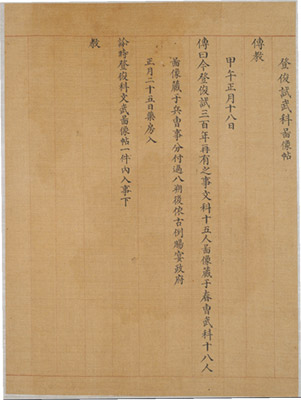 登俊試武科啚像帖
傳教
甲午正月十八日
傳曰今登俊試三百年再有之事文科十五人啚像藏于春曹武科十八人
啚像藏于兵曹事分付過八朔後依古例賜宴政府
正月二十五日藥房入
診時登俊科文武啚像帖一件內入事下
教